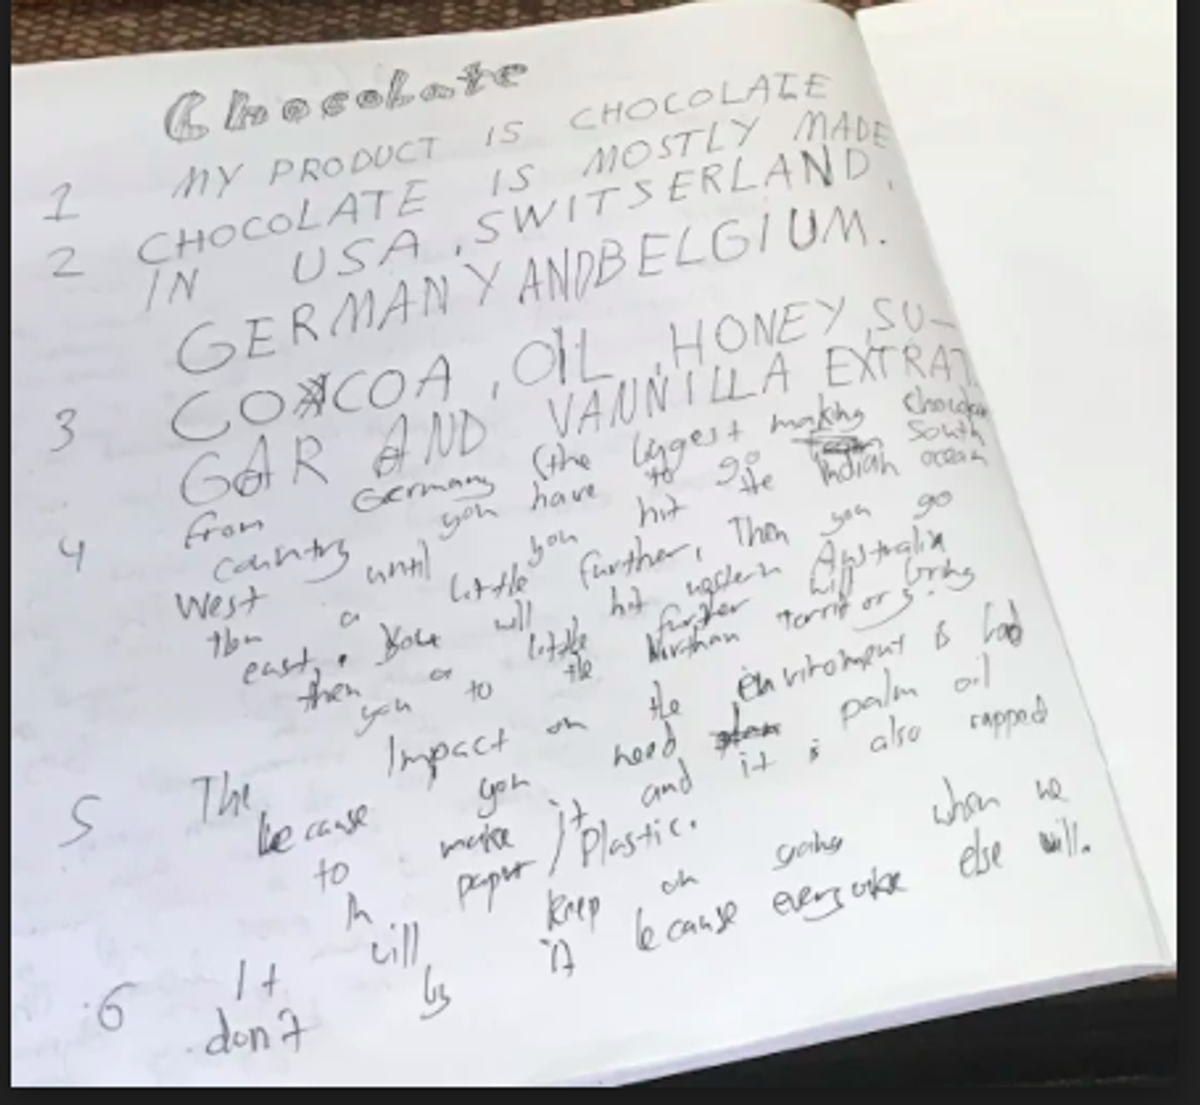 Chocolate
1 MY PRODUCT IS CHOCOLATE
2 CHOCOLATE IS MOSTLY MADE
IN USA, SWITSERLAND,
GERMANY ANDBELGIUM.
3 COCOA, OIL, HONEY, SU-
GAR AND VANNILLA EXTRAT
4 from Germany (the lagest making Chocolate
country you have to go South
West until you hit the Indian ocean
then a little further, Then you go
east. You will hit western Australia
then a little further will bring
you to the Northan Territory.
5 The Impact on the enviroment is bad
because you need palm oil
to make it and it is also rapped
in paper / Plastic.
6 It will keep on going when we
don't by it because everyone else will.